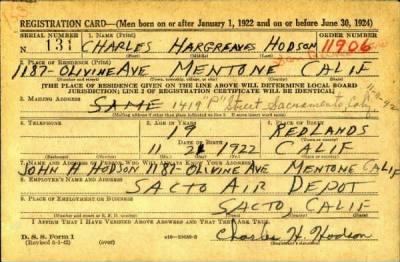 REGISTRATION CARD—(Men born on or after January 1, 1922 and on or before June 30, 1924)
SERIAL NUMBER 1. NAME (Print) ORDER NUMBER
131 CHARLES HARGREAVES HODSON 11906
(First) (Middle) (Last)
2. PLACE OF RESIDENCE (Print)
1187-OLIVINE AVE MENTONE CALIF
(Number and street) (Town, township, village, or city) (County) (State)
[THE PLACE OF RESIDENCE GIVEN ON THE LINE ABOVE WILL DETERMINE LOCAL BOARD
JURISDICTION; LINE 2 OF REGISTRATION CERTIFICATE WILL BE IDENTICAL]
3. MAILING ADDRESS
SAME 1419 "P" Street Sacramento, Calif
4. TELEPHONE 5. AGE IN YEARS 6. PLACE OF BIRTH
19 REDLANDS
DATE OF BIRTH
11 21 1922 CALIF
7. NAME AND ADDRESS OF PERSON WHO WILL ALWAYS KNOW YOUR ADDRESS
JOHN H HODSON 1187-OLIVINE AVE MENTONE CALIF
8. EMPLOYER'S NAME AND ADDRESS
SACTO AIR DEPOT
9. PLACE OF EMPLOYMENT OR BUSINESS
SACTO, CALIF
(Number and street or R. F. D. number) (Town) (County) (State)
I AFFIRM THAT I HAVE VERIFIED ABOVE ANSWERS AND THAT THEY ARE TRUE.
D. S. S. Form 1
(Revised 6-1-42)
Charles H. Hodson